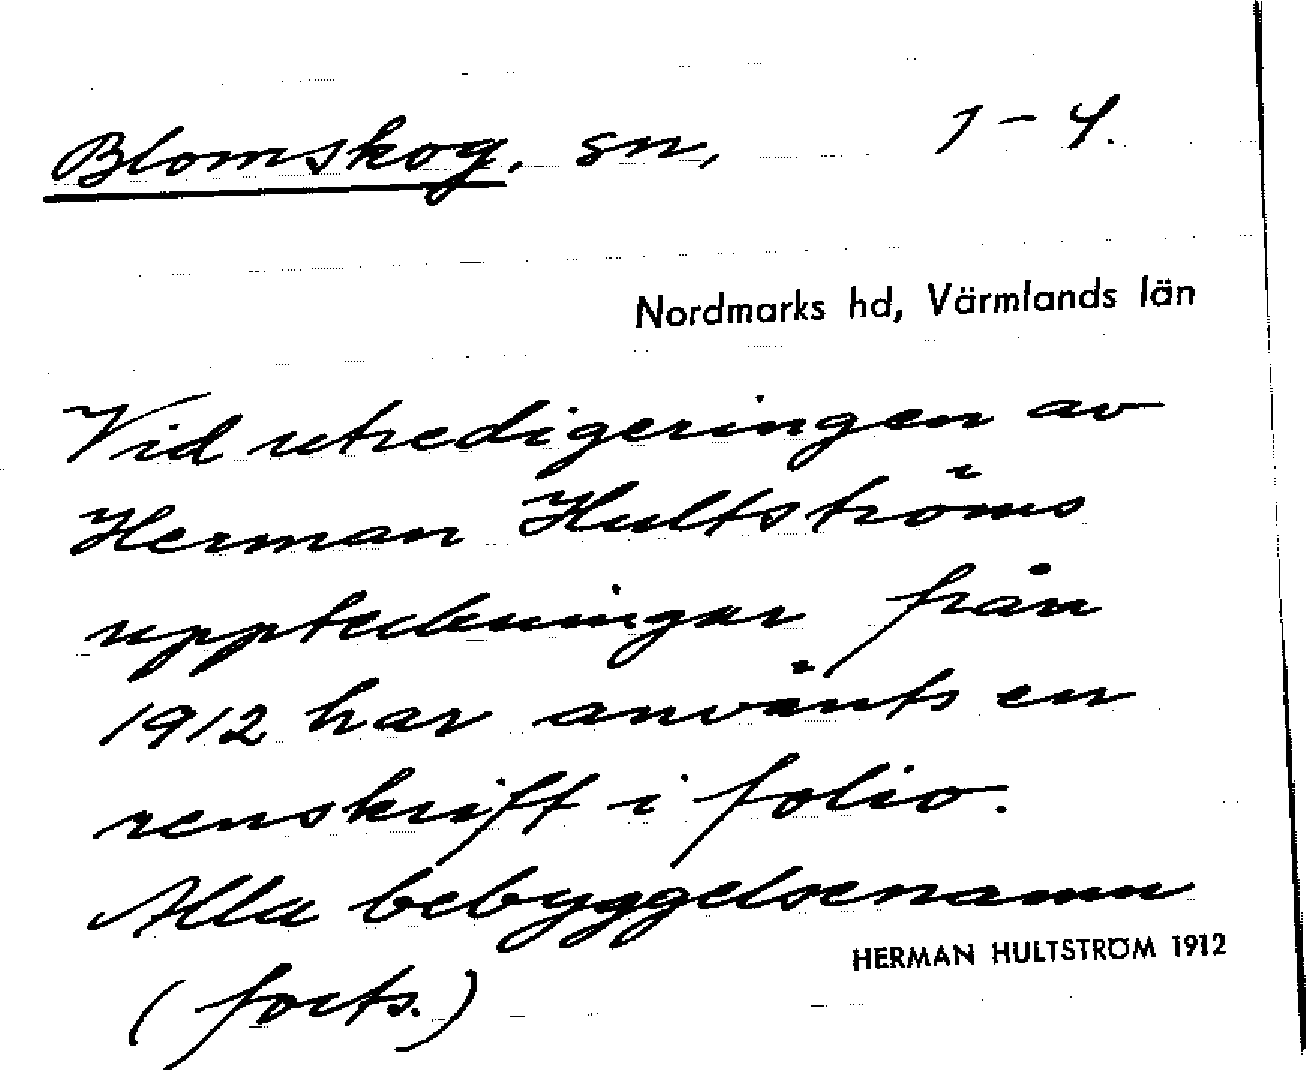 Blomskog, sn, 1-4.
Nordmarks hd, Värmlands län
Vid utredigeringen av
Herman Hultströms
uppteckningar från
1912 har använts en
renskrift i folio.
Alla bebyggelsenamn
HERMAN HULTSTRÖM 1912
(forts.)